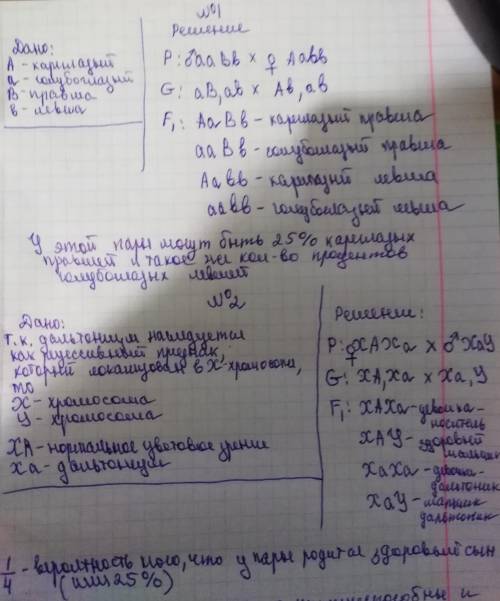 №1
Дано:
А - кареглазый
а - голубоглазый
В - правша
в - левша
Решение
Р: ♂ааВв × ♀ Аавв
G: аВ, ав × Ав, ав
F₁: АаВв - кареглазый правша
ааВв - голубоглазый правша
Аавв - кареглазый левша
аавв - голубоглазый левша
У этой пары могут быть 25% кареглазых
правшей и такое же кол-во процентов
голубоглазых левшей
№2
Дано:
т.к. дальтонизм наследуется
как рецессивный признак,
который локализован в Х-хромосоме,
то
Х - хромосома
У - хромосома
ХА - нормальное цветовое зрение
Ха - дальтонизм
Решение:
Р: ♀ХАХа × ♂ХаУ
G: ХА, Ха × Ха, У
F₁: ХАХа - девочка-
носитель
ХАУ - здоровый
мальчик
ХаХа - девочка-
дальтоник
ХаУ - мальчик
дальтоник
1/4 - вероятность того, что у пары родится здоровый сын
(или 25%)
и